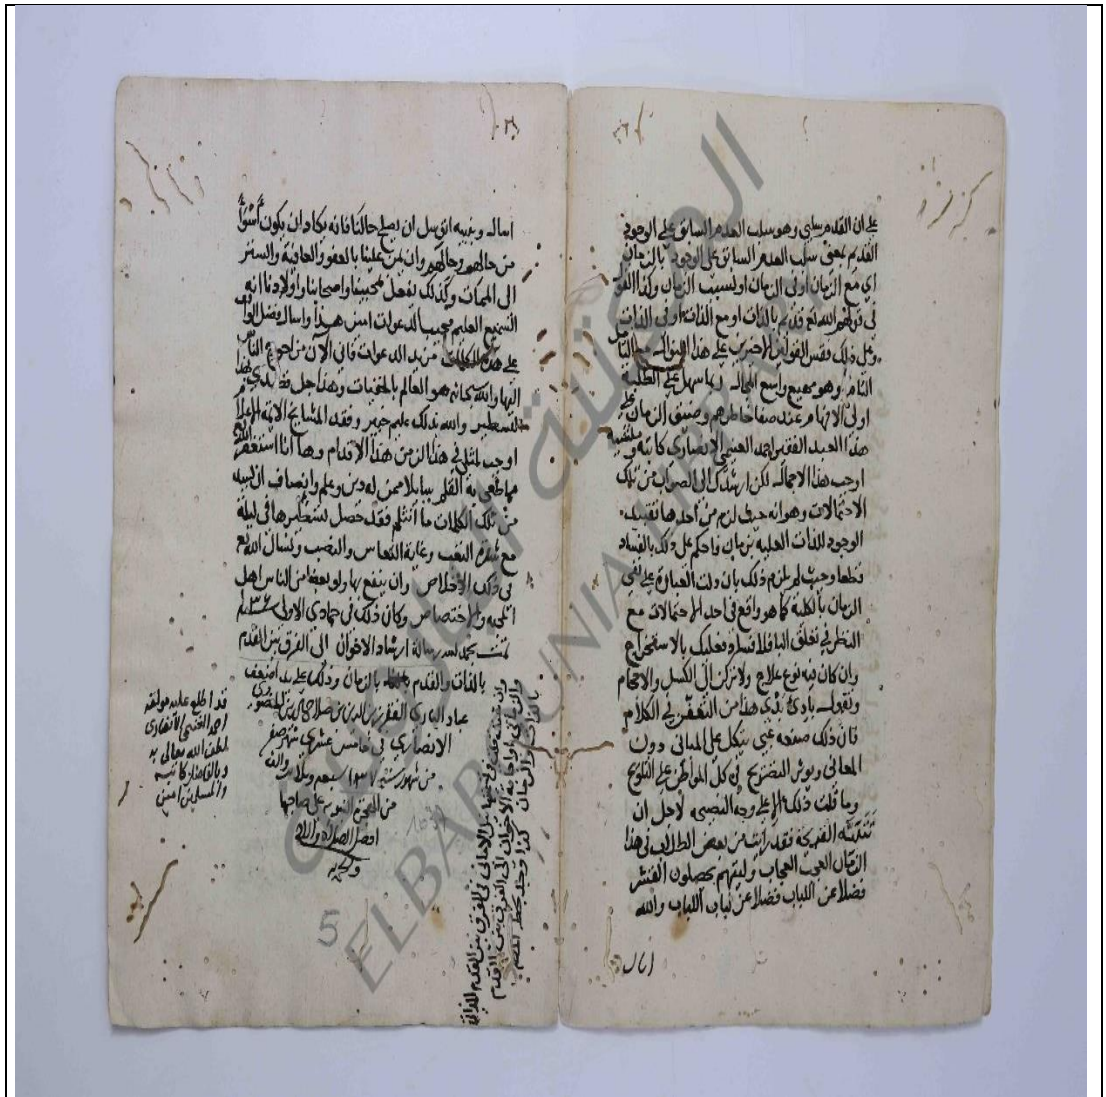 على ان القدم سلبي وهو سلب العدم السابق على الوجود
القديم بمعنى سلب العدم السابق على الوجود بالزمان
اي مع الزمان او في الزمان او بسبب الزمان وكذا القول
في قولهم الله تع قديم بالذات او مع الذات او في الذات
وعلى ذلك نفس القولين الاخيرين على هذا المنوال مع التامل
التام وهو مهيع واسع المجال ربما سهل على الطلبة
اولى الافهام عند صفا خاطرهم وضيق الزمان على
هذا العبد الفقير احمد الغنيمي الانصاري كاتبه
اوجب هذا الاجمال لكن ارشدك الى الصواب من تلك
الاحتمالات وهو انه حيث لزم من احدها تقييد
الوجود للذات العلية بزمان فاحكم على ذلك بالفساد
قطعا وحيث لم يلزم ذلك بان دلت العبارة على نفي
الزمان بالكلية كما هو واقع في احد الاحتمالات مع
النظر في تعلق البا فلا فساد فعليك بالاستخراج
وان كان فيه نوع علاج ولا تركن الى الكسل والاحجام
وتقول بادئ بدى هذا من التقعر في الكلام
فان ذلك صنعه غبي يتكل على المباني دون
المعاني ويوثر التصريح في كل المواطن على التلويح
وما قلت ذلك الا على وجه النصيحة لاجل ان
تتنبه القريحة فقد رايت من بعض الطلاب في هذا
الزمان العجب العجاب وليتهم يحصلون القشر
فضلا عن اللباب فضلا عن لباب اللباب والله
اسال
اسال وبنبيه اتوسل ان يصلح حالنا فانه يكاد ان يكون أسْوَأ
من حالهم وحالهم وان يمن علينا بالعفو والعافية والستر
الى الممات وكذلك يفعل بمحبينا واصحابنا واولادنا انه
السميع العليم مجيب الدعوات امين هذا واسال فضل الواقف
على هذه الكلمات مزيد الدعوات فاني الآن من احوج الناس
اليها والله سبحانه هو العالم بالخفيات وهذا جل قصدي بهذا
التسطير والله بذلك عليم خبير وفقد المشايخ الايمه الاعلام
اوجب لمثلي في هذا الزمن هذا الاقدام وها انا استغفر الله
مما طغى به القلم سايلا ممن له دين وعلم وانصاف ان ليبه
من تلك الكلمات ما انثلم فقد حصل تسطيرها في ليلة
مع شدة التعب وغاية النعاس والنصب ونسال الله تع
في ذلك الاخلاص وان ينفع بها ولو بعضا من الناس اهل
المحبه والاختصاص وكان ذلك في جمادي الاولى
تمت بحمد الله رسالة ارشاد الاخوان الى الفرق بين القدم
بالذات والقدم بالزمان وذلك على يد اضعف
عباد الباري الفقير زين الدين بن صلاح الدين
الانصاري في خامس عشري شهر صفر
من شهور سنة سبعه وثلاثين والف
من الهجرة النبويه على صاحبها
افضل الصلاة والسلام
قد اطلع عليه مولفه
احمد الغنيمي الانصاري
لطف الله تعالى به
كاتبه
والمسلمين امين
بين القدم
بالذات والزمان كذا وجد بخط
5
الدار العتيقة البارونية
ELBAROUNIA LIBRARY